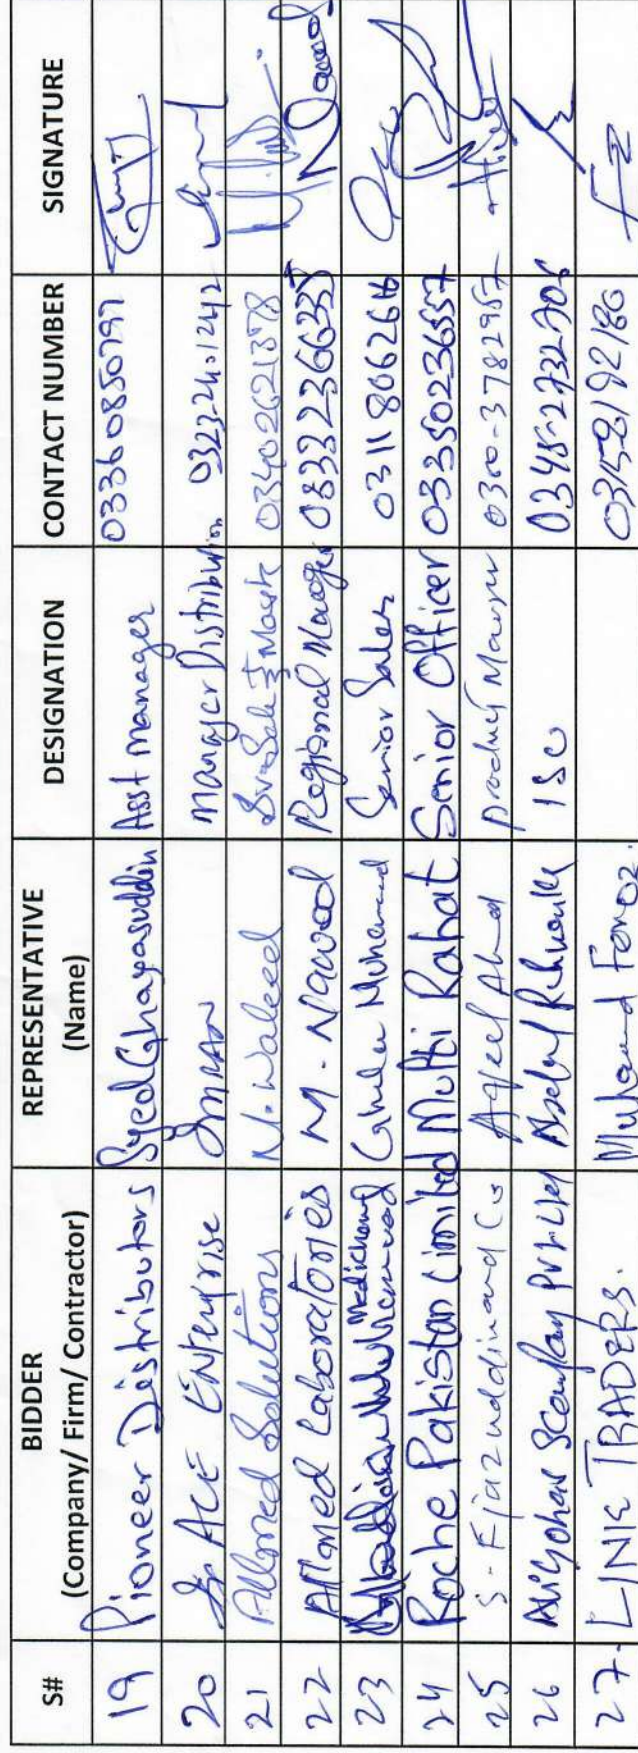 S# BIDDER (Company/ Firm/ Contractor) REPRESENTATIVE (Name) DESIGNATION CONTACT NUMBER SIGNATURE
19 Pioneer Distributors Syed Ghayasuddin Asst Manager 03360850797
20 ACE Enterprise Imran Manager Distribution 0323-2401242
21 Allmed Solutions M. Waleed Sr. Sale & Mark 03402621378
22 Allmed Laboratories M. Nawod Regional Manager Nawod
23 Medichem Ghulam Muhammad Senior Sales 03118062616
24 Roche Pakistan Limited Mufti Rahat Senior Officer 03350236557
25 S. Ejazuddin and Co Aqeel Ahmd Product Manager 0300-3782957
26 Aligohar & Company Pvt Ltd ISO
27. LINK TRADERS. Muhammad Feroz. FZ